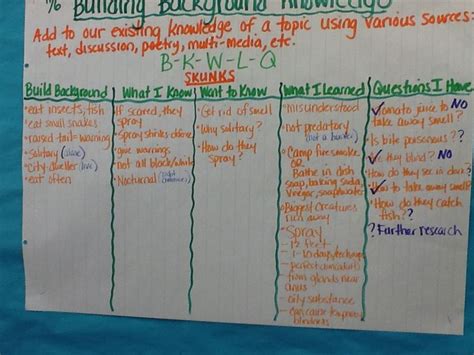 Building Background Knowledge
Add to our existing knowledge of a topic using various sources:
text, discussion, poetry, multi-media, etc.
B-K-W-L-Q
SKUNKS
Build Background
•eat insects, fish
•eat small snakes
•raised tail-warning
•Solitary (alone)
•City-dweller (live)
•eat often
What I Know
•If scared, they spray
•Spray shinks defense
•give warnings
•not all black/white
•Nocturnal (night
Want to Know
•Got rid of smell
•Why solitary?
•How do they spray?
What I Learned
•misunderstood
•not predatory
(not a hunter)
•Camp fire smoke
OR
Bathe in dish
soap, baking soda,
vinegar, soap/water
•Biggest creatures
run away
•Spray
-12 feet
-1-10 days
-from glands near
anus
-oily substance
-can cause temporary
blindness
Questions I Have
Tomato juice to NO
take away smell?
Is bite poisonous??
Are they blind? NO
•How do they see in dark?
•How to take away smell
•How do they catch
fish??
? Further research